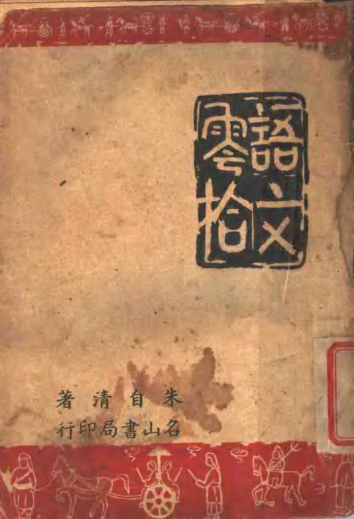 語文
零拾
朱自清著
名山書局印行